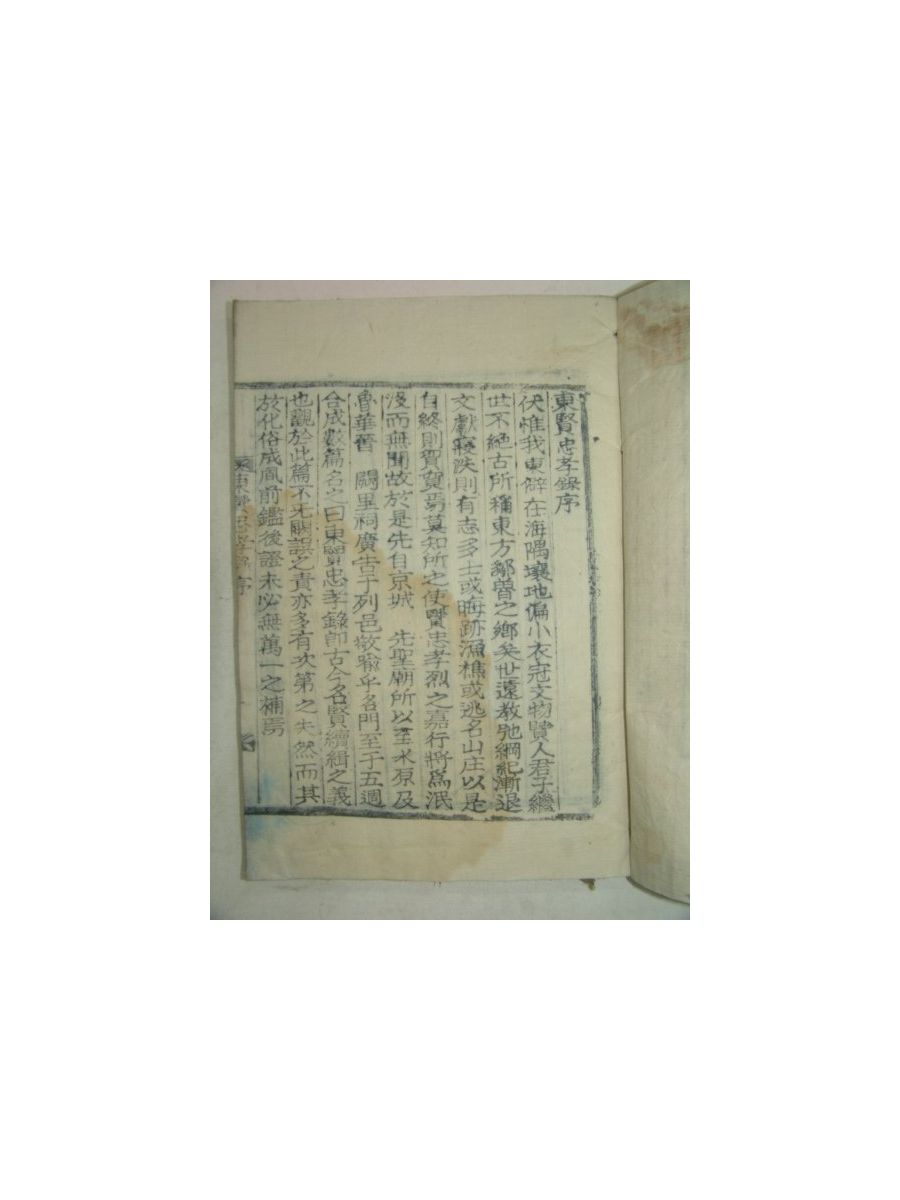 東賢忠孝錄序
伏惟我東僻在海隅壤地偏小衣冠文物賢人君子繼
世不絶古所稱東方鄒魯之鄉矣世遠教弛綱紀漸退
文獻寢泆則有志多士或晦跡漁樵或逃名山庄以是
自終則賀賀焉莫知所之使賢忠孝烈之嘉行將爲泯
沒而無聞故於是先自京城 先聖廟所以至水原及
魯華晉 闕里祠廣告于列邑敬喻乎名門至于五週
合成數篇名之曰東賢忠孝錄卽古今名賢續緝之義
也觀於此篇不无闕誤之責亦多有次第之失然而其
於化俗成風前鑑後證未必無萬一之補焉
東賢忠孝錄序